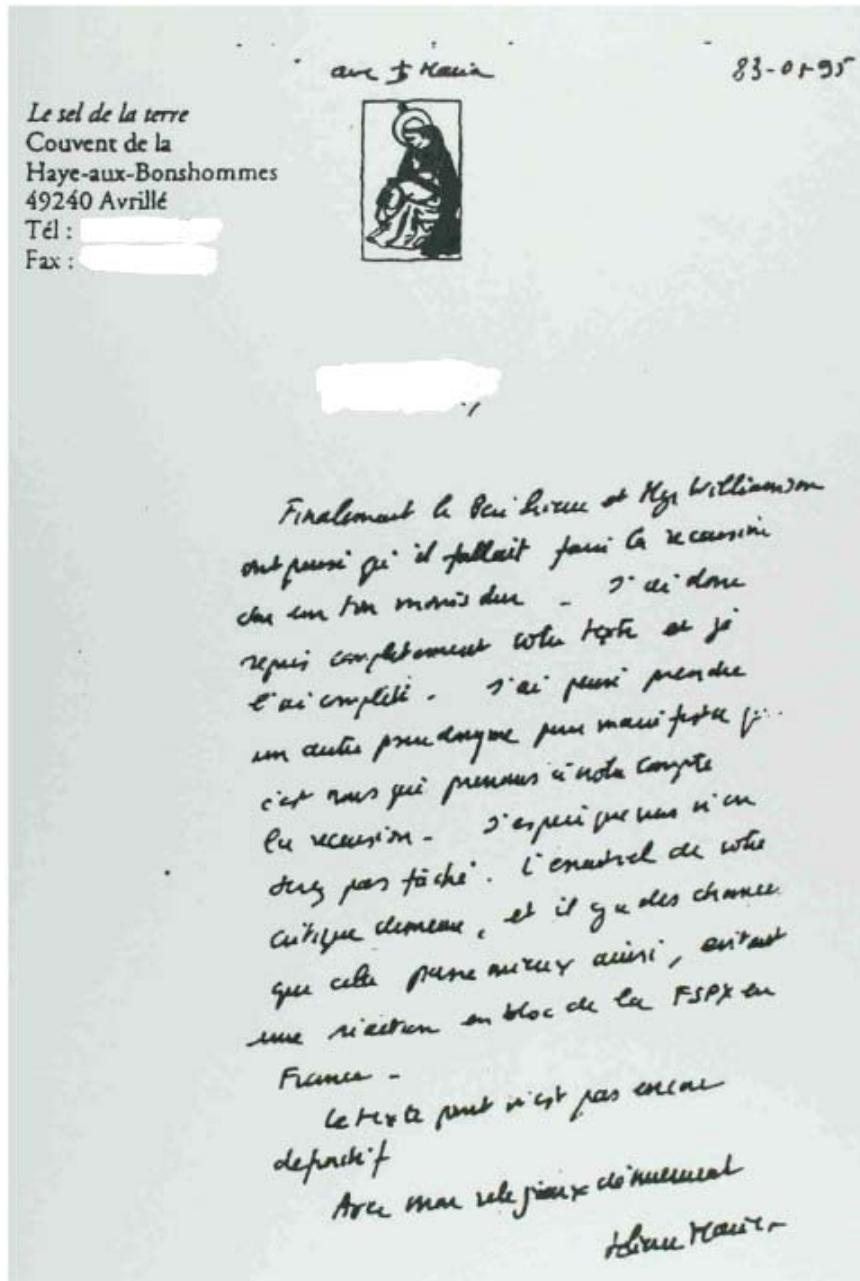 ave Maria
83-01-95
Le sel de la terre
Couvent de la
Haye-aux-Bonshommes
49240 Avrillé
Tél :
Fax :
Finalement le et Mgr Williamson
ont pensé qu'il fallait faire la recension
un ton moins dur - J'ai donc
repris complètement votre texte et je
l'ai complété - J'ai pensé prendre
un autre pseudonyme pour manifester
c'est nous qui prenons à notre compte
la recension - J'espère que vous n'en
serez pas fâché. L'essentiel de votre
critique demeure, et il y a des chances
que cela passe mieux ainsi, évitant
une réaction en bloc de la FSPX en
France -
Le texte n'est pas encore
définitif
Avec mon religieux dévouement